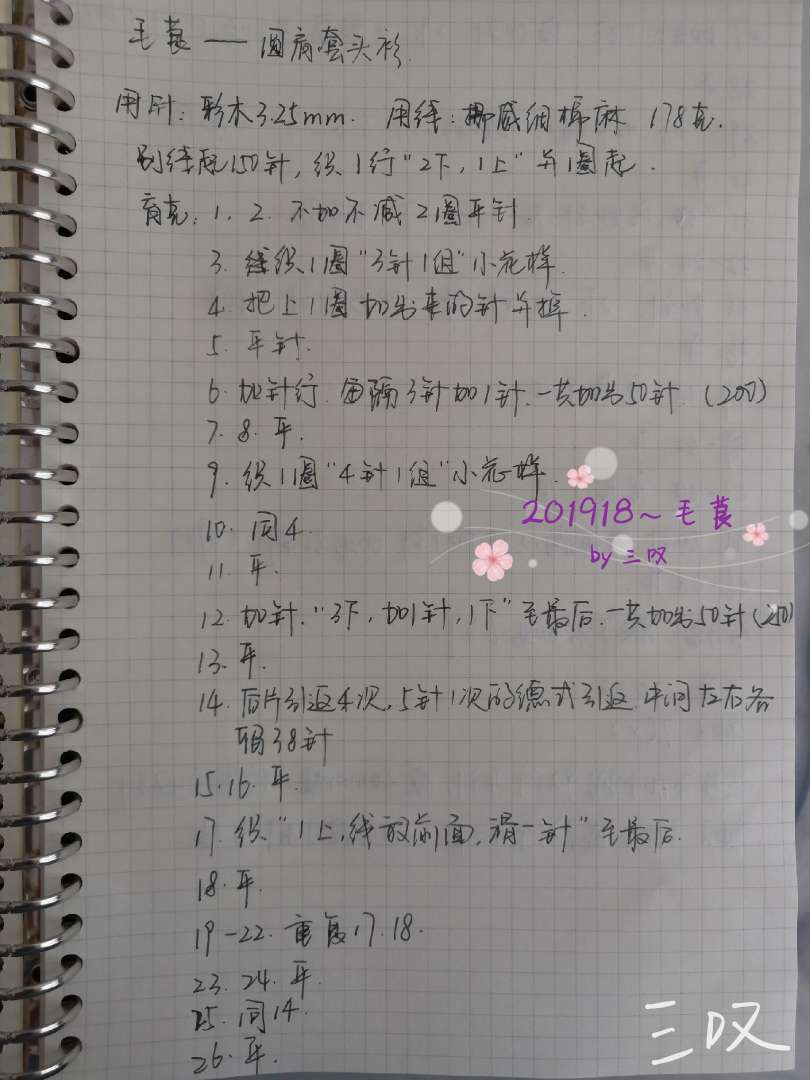 毛莨——圆肩套头衫.
用针：彩木3.25mm. 用线：挪威细棉麻 178克.
别线起150针, 织1行“2下, 1上”并1圈起.
育克：1. 2. 不加不减2圈平针.
3. 织1圈“3针1组”小花样.
4. 把上1圈加出来的针并掉.
5. 平针.
6. 加针行. 每隔3针加1针. 一共加出50针. (200)
7. 8. 平.
9. 织1圈“4针1组”小花样.
201918~毛莨
by 三叹
10. 同4.
11. 平.
12. 加针. “3下, 加1针, 1下”至最后. 一共加出50针(250)
13. 平.
14. 后片引返4次, 5针1次的德式引返. 中间左右各
38针
15. 16. 平.
17. 织“1上, 线放前面, 滑一针”至最后.
18. 平.
19-22. 重复17. 18.
23. 24. 平.
25. 同14.
26. 平.
三叹